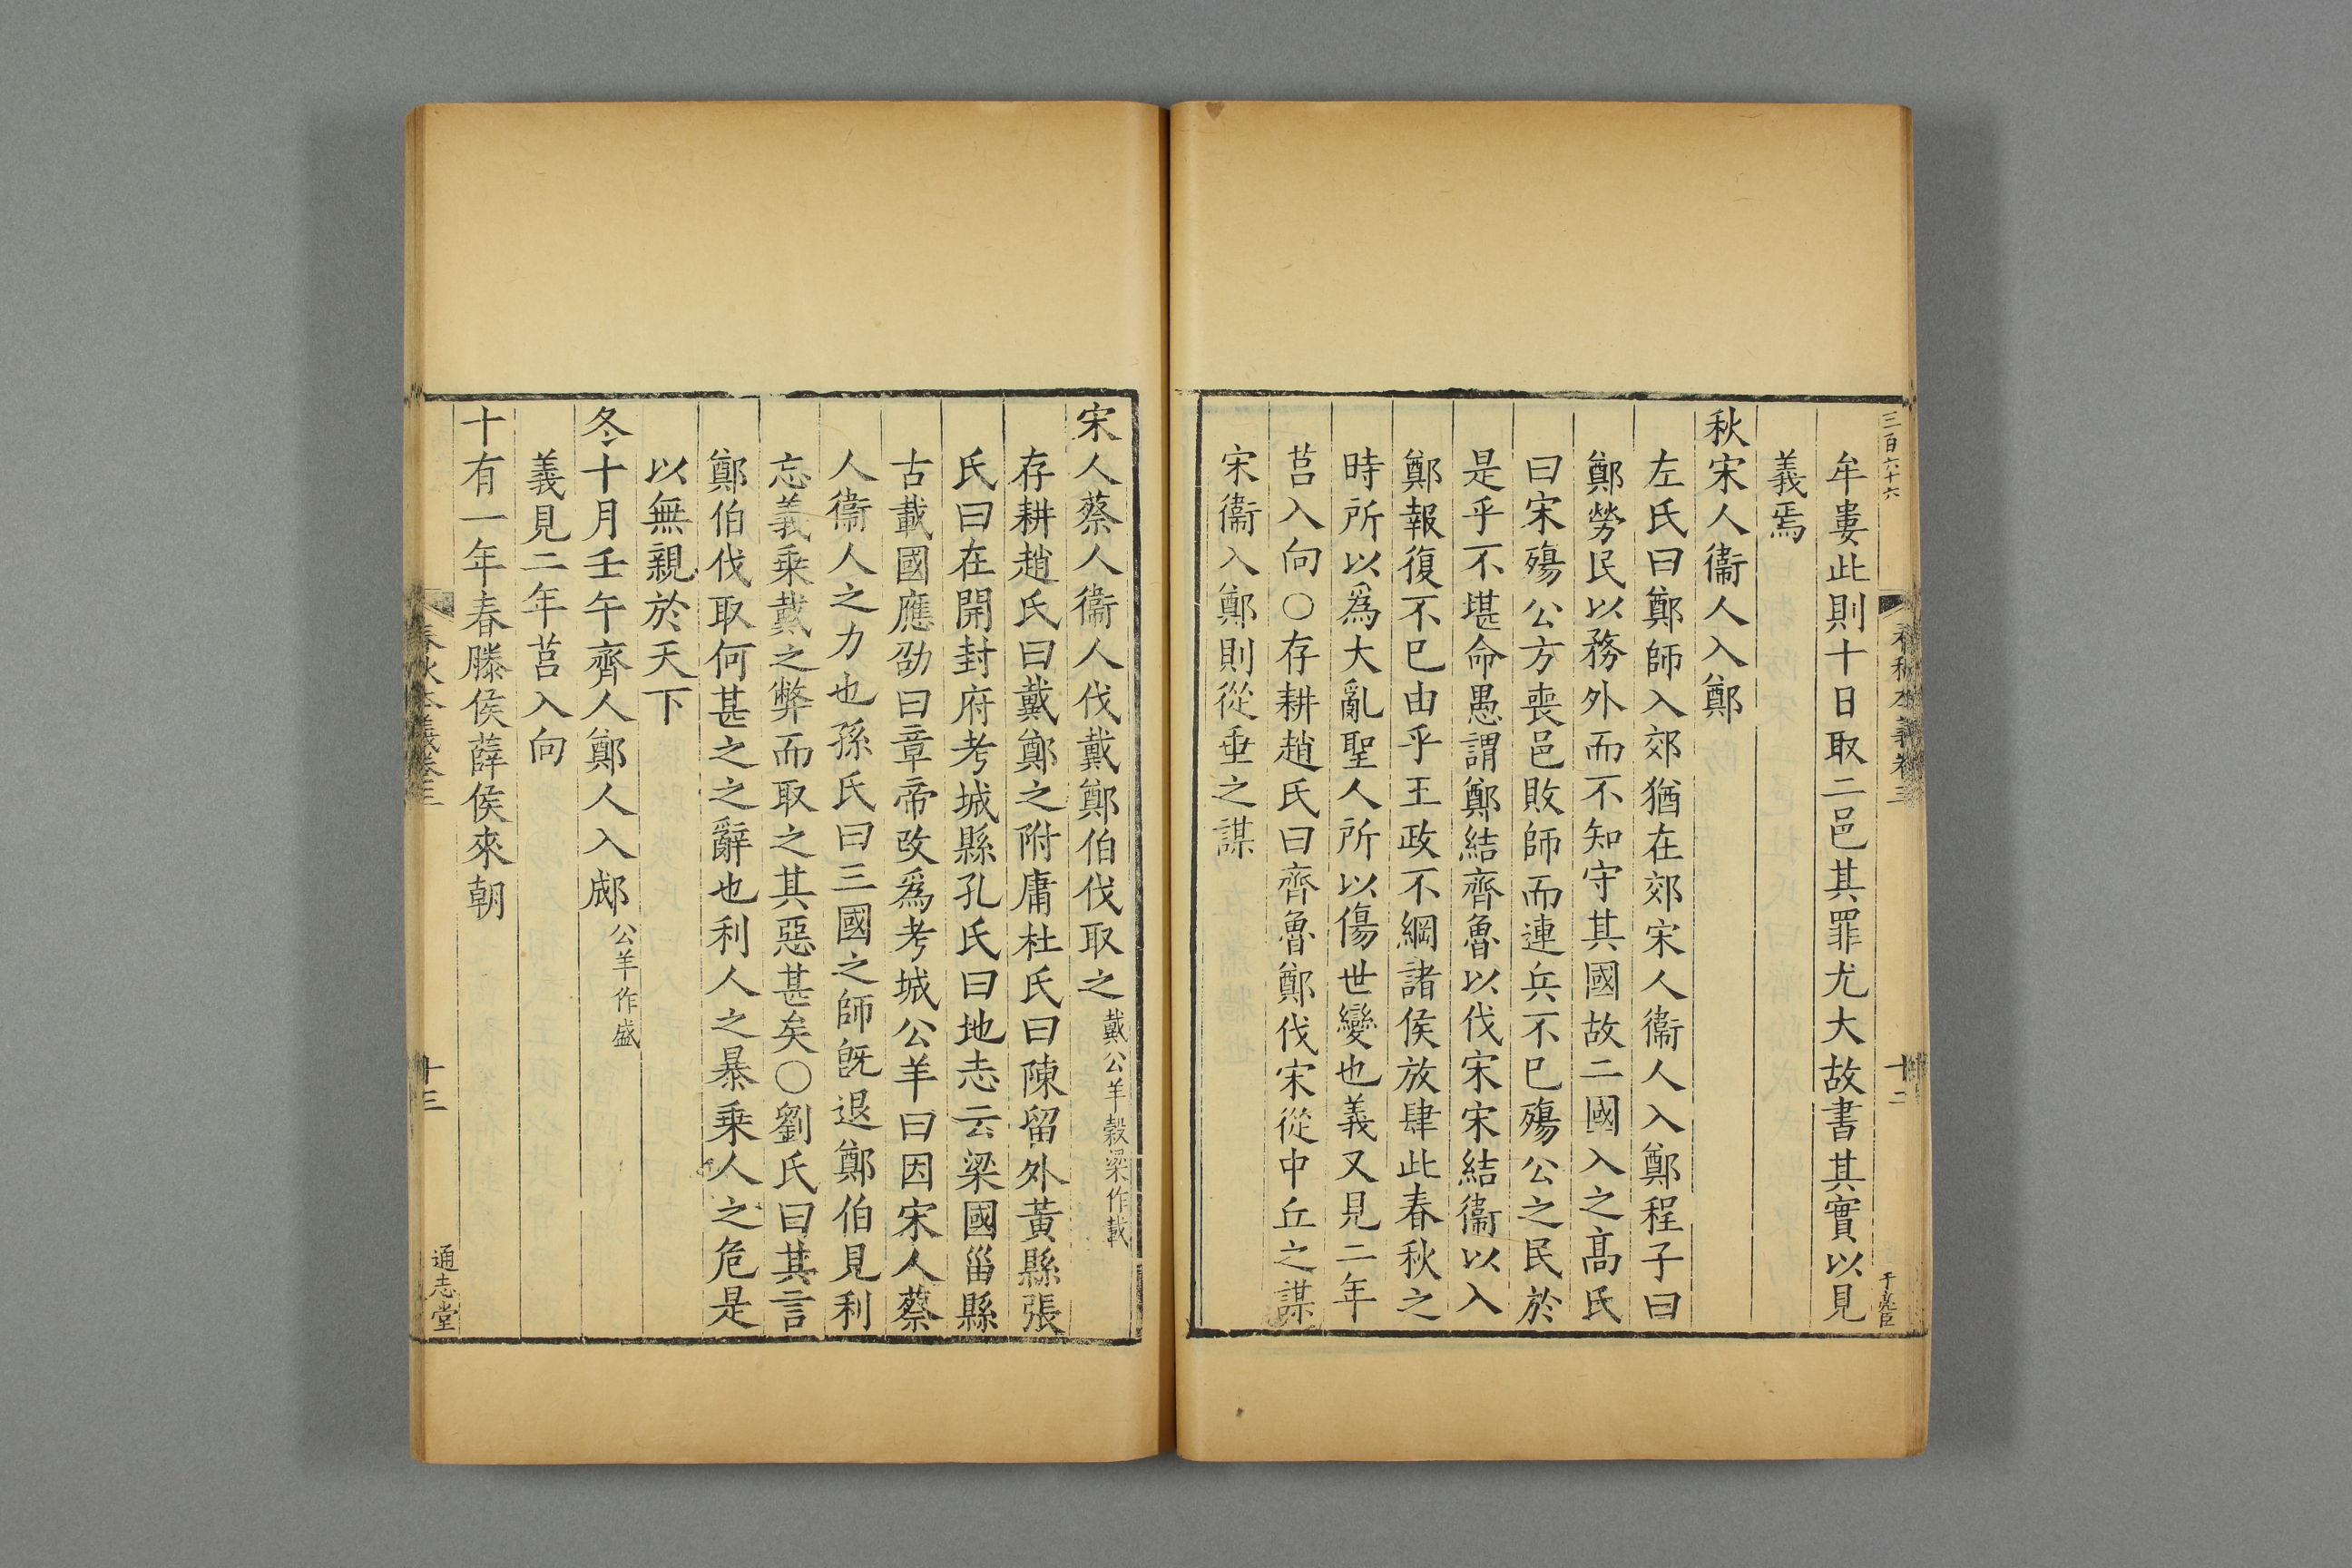 三百六十六
春秋本義卷三
十二
于亮臣
牟婁此則十日取二邑其罪尤大故書其實以見
義焉
秋宋人衞人入鄭
左氏曰鄭師入郊猶在郊宋人衞人入鄭程子曰
鄭勞民以務外而不知守其國故二國入之髙氏
曰宋殤公方喪邑敗師而連兵不已殤公之民於
是乎不堪命愚謂鄭結齊魯以伐宋宋結衞以入
鄭報復不已由乎王政不綱諸侯放肆此春秋之
時所以爲大亂聖人所以傷世變也義又見二年
莒入向○存耕趙氏曰齊魯鄭伐宋從中丘之謀
宋衞入鄭則從垂之謀
宋人蔡人衞人伐戴鄭伯伐取之戴公羊穀梁作載
存耕趙氏曰戴鄭之附庸杜氏曰陳留外黃縣張
氏曰在開封府考城縣孔氏曰地志云梁國甾縣
古載國應劭曰章帝改爲考城公羊曰因宋人蔡
人衞人之力也孫氏曰三國之師旣退鄭伯見利
忘義乗戴之弊而取之其惡甚矣○劉氏曰其言
鄭伯伐取何甚之之辭也利人之暴乗人之危是
以無親於天下
冬十月壬午齊人鄭人入郕公羊作盛
義見二年莒入向
十有一年春滕侯薛侯來朝
春秋本義卷三
十三
通志堂